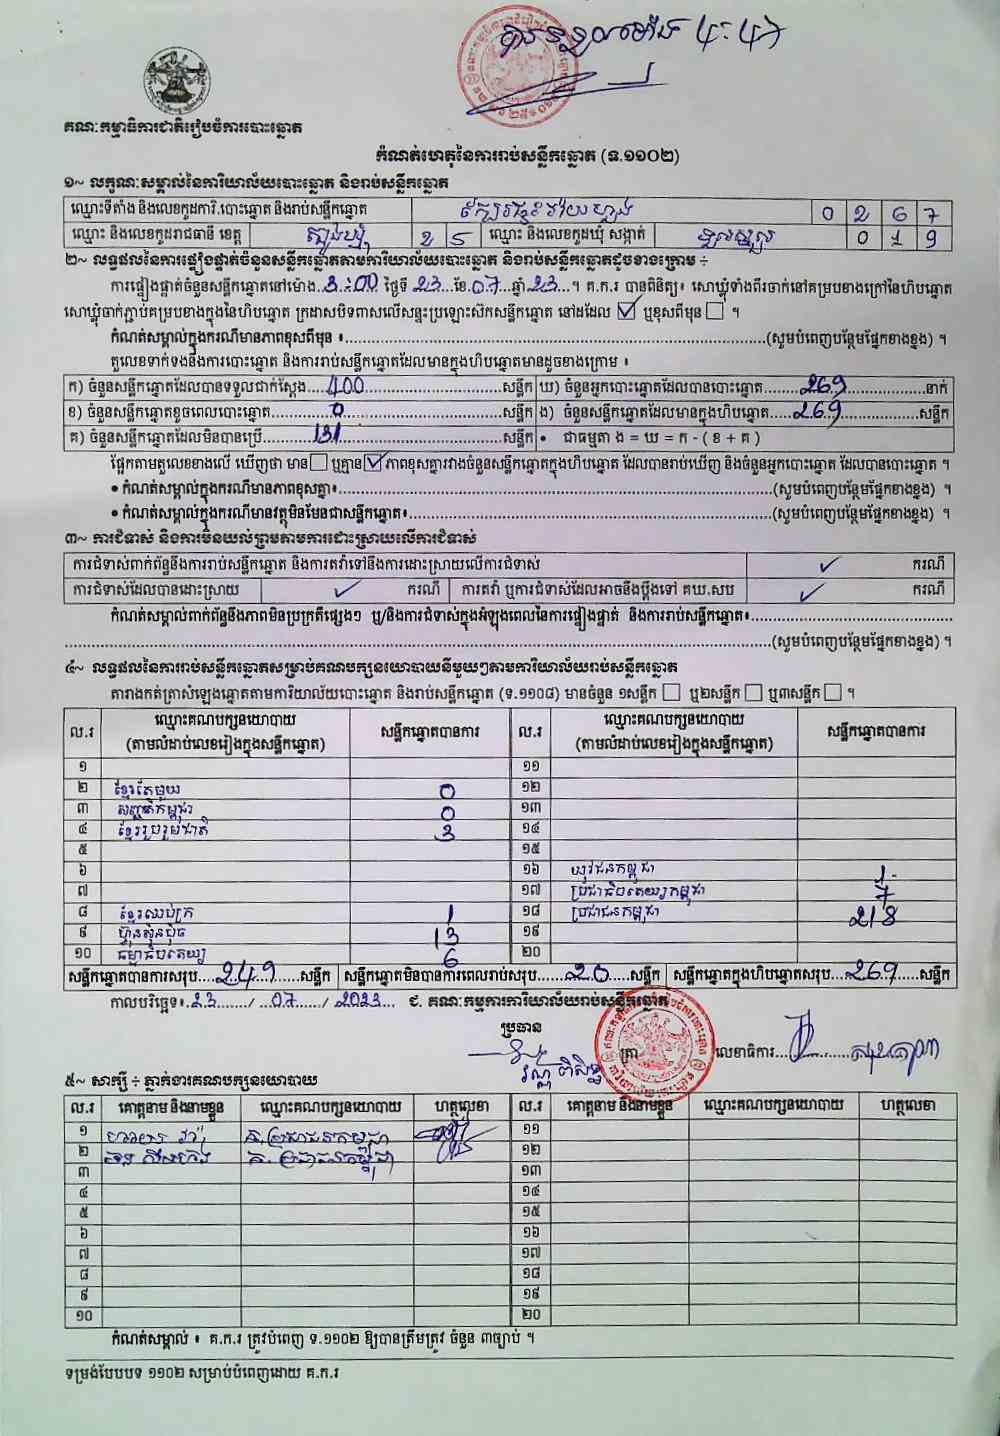 បានទទួលម៉ោង ៤:៤១
គណៈកម្មាធិការជាតិរៀបចំការបោះឆ្នោត
កំណត់ហេតុនៃការរាប់សន្លឹកឆ្នោត (ទ.១១០២)
១~ លក្ខណៈសម្គាល់នៃការិយាល័យបោះឆ្នោត និងរាប់សន្លឹកឆ្នោត
ឈ្មោះទីតាំង និងលេខកូដការិ.បោះឆ្នោត និងរាប់សន្លឹកឆ្នោត 0 2 6 7
ឈ្មោះ និងលេខកូដរាជធានី ខេត្ត ត្បូងឃ្មុំ 2 5 ឈ្មោះ និងលេខកូដឃុំ សង្កាត់ 0 1 9
២~ លទ្ធផលនៃការផ្ទៀងផ្ទាត់ចំនួនសន្លឹកឆ្នោតតាមការិយាល័យបោះឆ្នោត និងរាប់សន្លឹកឆ្នោតដូចខាងក្រោម ÷
ការផ្ទៀងផ្ទាត់ចំនួនសន្លឹកឆ្នោតនៅម៉ោង 3:00 ថ្ងៃទី 23 ខែ 07 ឆ្នាំ 23 ។ គ.ក.រ បានពិនិត្យ៖ សោឃ្លុំទាំងពីរចាក់នៅគម្របខាងក្រៅនៃហិបឆ្នោត
សោឃ្លុំចាក់ភ្ជាប់គម្របខាងក្នុងនៃហិបឆ្នោត ក្រដាសបិទពាសលើសន្ទះប្រឡោះស៊កសន្លឹកឆ្នោត នៅដដែល ☑ ឬខុសពីមុន ☐ ។
កំណត់សម្គាល់ក្នុងករណីមានភាពខុសពីមុន ៖ (សូមបំពេញបន្ថែមផ្នែកខាងខ្នង) ។
តួលេខទាក់ទងនឹងការបោះឆ្នោត និងការរាប់សន្លឹកឆ្នោតដែលមានក្នុងហិបឆ្នោតមានដូចខាងក្រោម ៖
ក) ចំនួនសន្លឹកឆ្នោតដែលបានទទួលជាក់ស្តែង 400 សន្លឹក ឃ) ចំនួនអ្នកបោះឆ្នោតដែលបានបោះឆ្នោត 269 នាក់
ខ) ចំនួនសន្លឹកឆ្នោតខូចពេលបោះឆ្នោត 0 សន្លឹក ង) ចំនួនសន្លឹកឆ្នោតដែលមានក្នុងហិបឆ្នោត 269 សន្លឹក
គ) ចំនួនសន្លឹកឆ្នោតដែលមិនបានប្រើ 131 សន្លឹក • ជាធម្មតា ង = ឃ = ក - ( ខ + គ )
ផ្អែកតាមតួលេខខាងលើ ឃើញថា មាន ☐ ឬគ្មាន ☑ ភាពខុសគ្នារវាងចំនួនសន្លឹកឆ្នោតក្នុងហិបឆ្នោត ដែលបានរាប់ឃើញ និងចំនួនអ្នកបោះឆ្នោត ដែលបានបោះឆ្នោត ។
• កំណត់សម្គាល់ក្នុងករណីមានភាពខុសគ្នា៖ (សូមបំពេញបន្ថែមផ្នែកខាងខ្នង) ។
• កំណត់សម្គាល់ក្នុងករណីមានវត្ថុមិនមែនជាសន្លឹកឆ្នោត៖ (សូមបំពេញបន្ថែមផ្នែកខាងខ្នង) ។
៣~ ការជំទាស់ និងការមិនយល់ព្រមតាមការដោះស្រាយលើការជំទាស់
ការជំទាស់ពាក់ព័ន្ធនឹងការរាប់សន្លឹកឆ្នោត និងការតវ៉ាទៅនឹងការដោះស្រាយលើការជំទាស់ ✓ ករណី
ការជំទាស់ដែលបានដោះស្រាយ ✓ ករណី ការតវ៉ា ឬការជំទាស់ដែលអាចនឹងប្តឹងទៅ គឃ.សប ✓ ករណី
កំណត់សម្គាល់ពាក់ព័ន្ធនឹងភាពមិនប្រក្រតីផ្សេងៗ ឬ/និងការជំទាស់ក្នុងអំឡុងពេលនៃការផ្ទៀងផ្ទាត់ និងការរាប់សន្លឹកឆ្នោត៖
(សូមបំពេញបន្ថែមផ្នែកខាងខ្នង) ។
៤~ លទ្ធផលនៃការរាប់សន្លឹកឆ្នោតសម្រាប់គណបក្សនយោបាយនីមួយៗតាមការិយាល័យរាប់សន្លឹកឆ្នោត
តារាងកត់ត្រាសំឡេងឆ្នោតតាមការិយាល័យបោះឆ្នោត និងរាប់សន្លឹកឆ្នោត (ទ.១១០៨) មានចំនួន ១សន្លឹក ☐ ឬ២សន្លឹក ☐ ឬ៣សន្លឹក ☐ ។
ល.រ ឈ្មោះគណបក្សនយោបាយ (តាមលំដាប់លេខរៀងក្នុងសន្លឹកឆ្នោត) សន្លឹកឆ្នោតបានការ ល.រ ឈ្មោះគណបក្សនយោបាយ (តាមលំដាប់លេខរៀងក្នុងសន្លឹកឆ្នោត) សន្លឹកឆ្នោតបានការ
១ ១១
២ ខ្មែរតែមួយ 0 ១២
៣ សញ្ជាតិកម្ពុជា 0 ១៣
៤ ខ្មែររួបរួមជាតិ 3 ១៤
៥ ១៥
៦ ១៦ យុវជនកម្ពុជា 1
៧ ១៧ ប្រជាធិបតេយ្យកម្ពុជា 7
៨ ខ្មែរឈប់ក្រ 1 ១៨ ប្រជាជនកម្ពុជា 218
៩ ហ៊្វុនស៊ិនប៉ិច 13 ១៩
១០ ធម្មាធិបតេយ្យ 6 ២០
សន្លឹកឆ្នោតបានការសរុប 249 សន្លឹក សន្លឹកឆ្នោតមិនបានការពេលរាប់សរុប 20 សន្លឹក សន្លឹកឆ្នោតក្នុងហិបឆ្នោតសរុប 269 សន្លឹក
កាលបរិច្ឆេទ៖ 23 / 07 / 2023 ជ. គណៈកម្មការការិយាល័យរាប់សន្លឹកឆ្នោត
ប្រធាន
ត្រា លេខាធិការ
៥~ សាក្សី ÷ ភ្នាក់ងារគណបក្សនយោបាយ
ល.រ គោត្តនាម និងនាមខ្លួន ឈ្មោះគណបក្សនយោបាយ ហត្ថលេខា ល.រ គោត្តនាម និងនាមខ្លួន ឈ្មោះគណបក្សនយោបាយ ហត្ថលេខា
១ គ.ប្រជាជនកម្ពុជា ១១
២ គ.ប្រជាជនកម្ពុជា ១២
៣ ១៣
៤ ១៤
៥ ១៥
៦ ១៦
៧ ១៧
៨ ១៨
៩ ១៩
១០ ២០
កំណត់សម្គាល់ ៖ គ.ក.រ ត្រូវបំពេញ ទ.១១០២ ឱ្យបានត្រឹមត្រូវ ចំនួន ៣ច្បាប់ ។
ទម្រង់បែបបទ ១១០២ សម្រាប់បំពេញដោយ គ.ក.រ